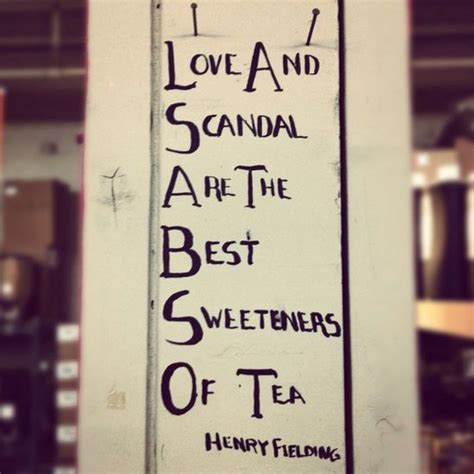 Love And
Scandal
Are The
Best
Sweeteners
Of Tea
Henry Fielding